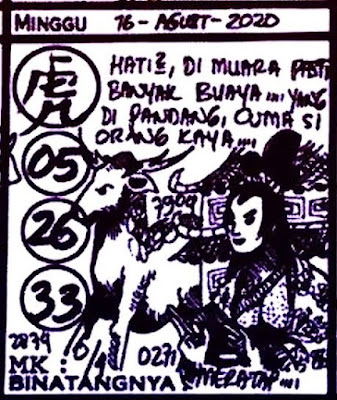 MINGGU 16 - AGUST - 2020
HATI², DI MUARA PASTI
BANYAK BUAYA .... YANG
DI PANDANG, CUMA SI
ORANG KAYA ....
05
26
33
2879
0271
MK :
BINATANGNYA : MERATAP ....